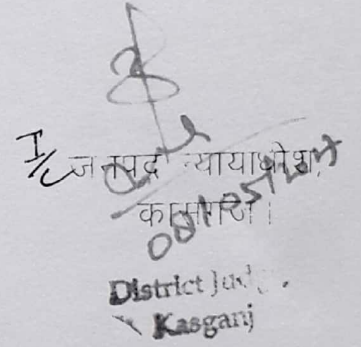 I/C जनपद न्यायाधीश,
कासगंज।
District Judge
Kasganj